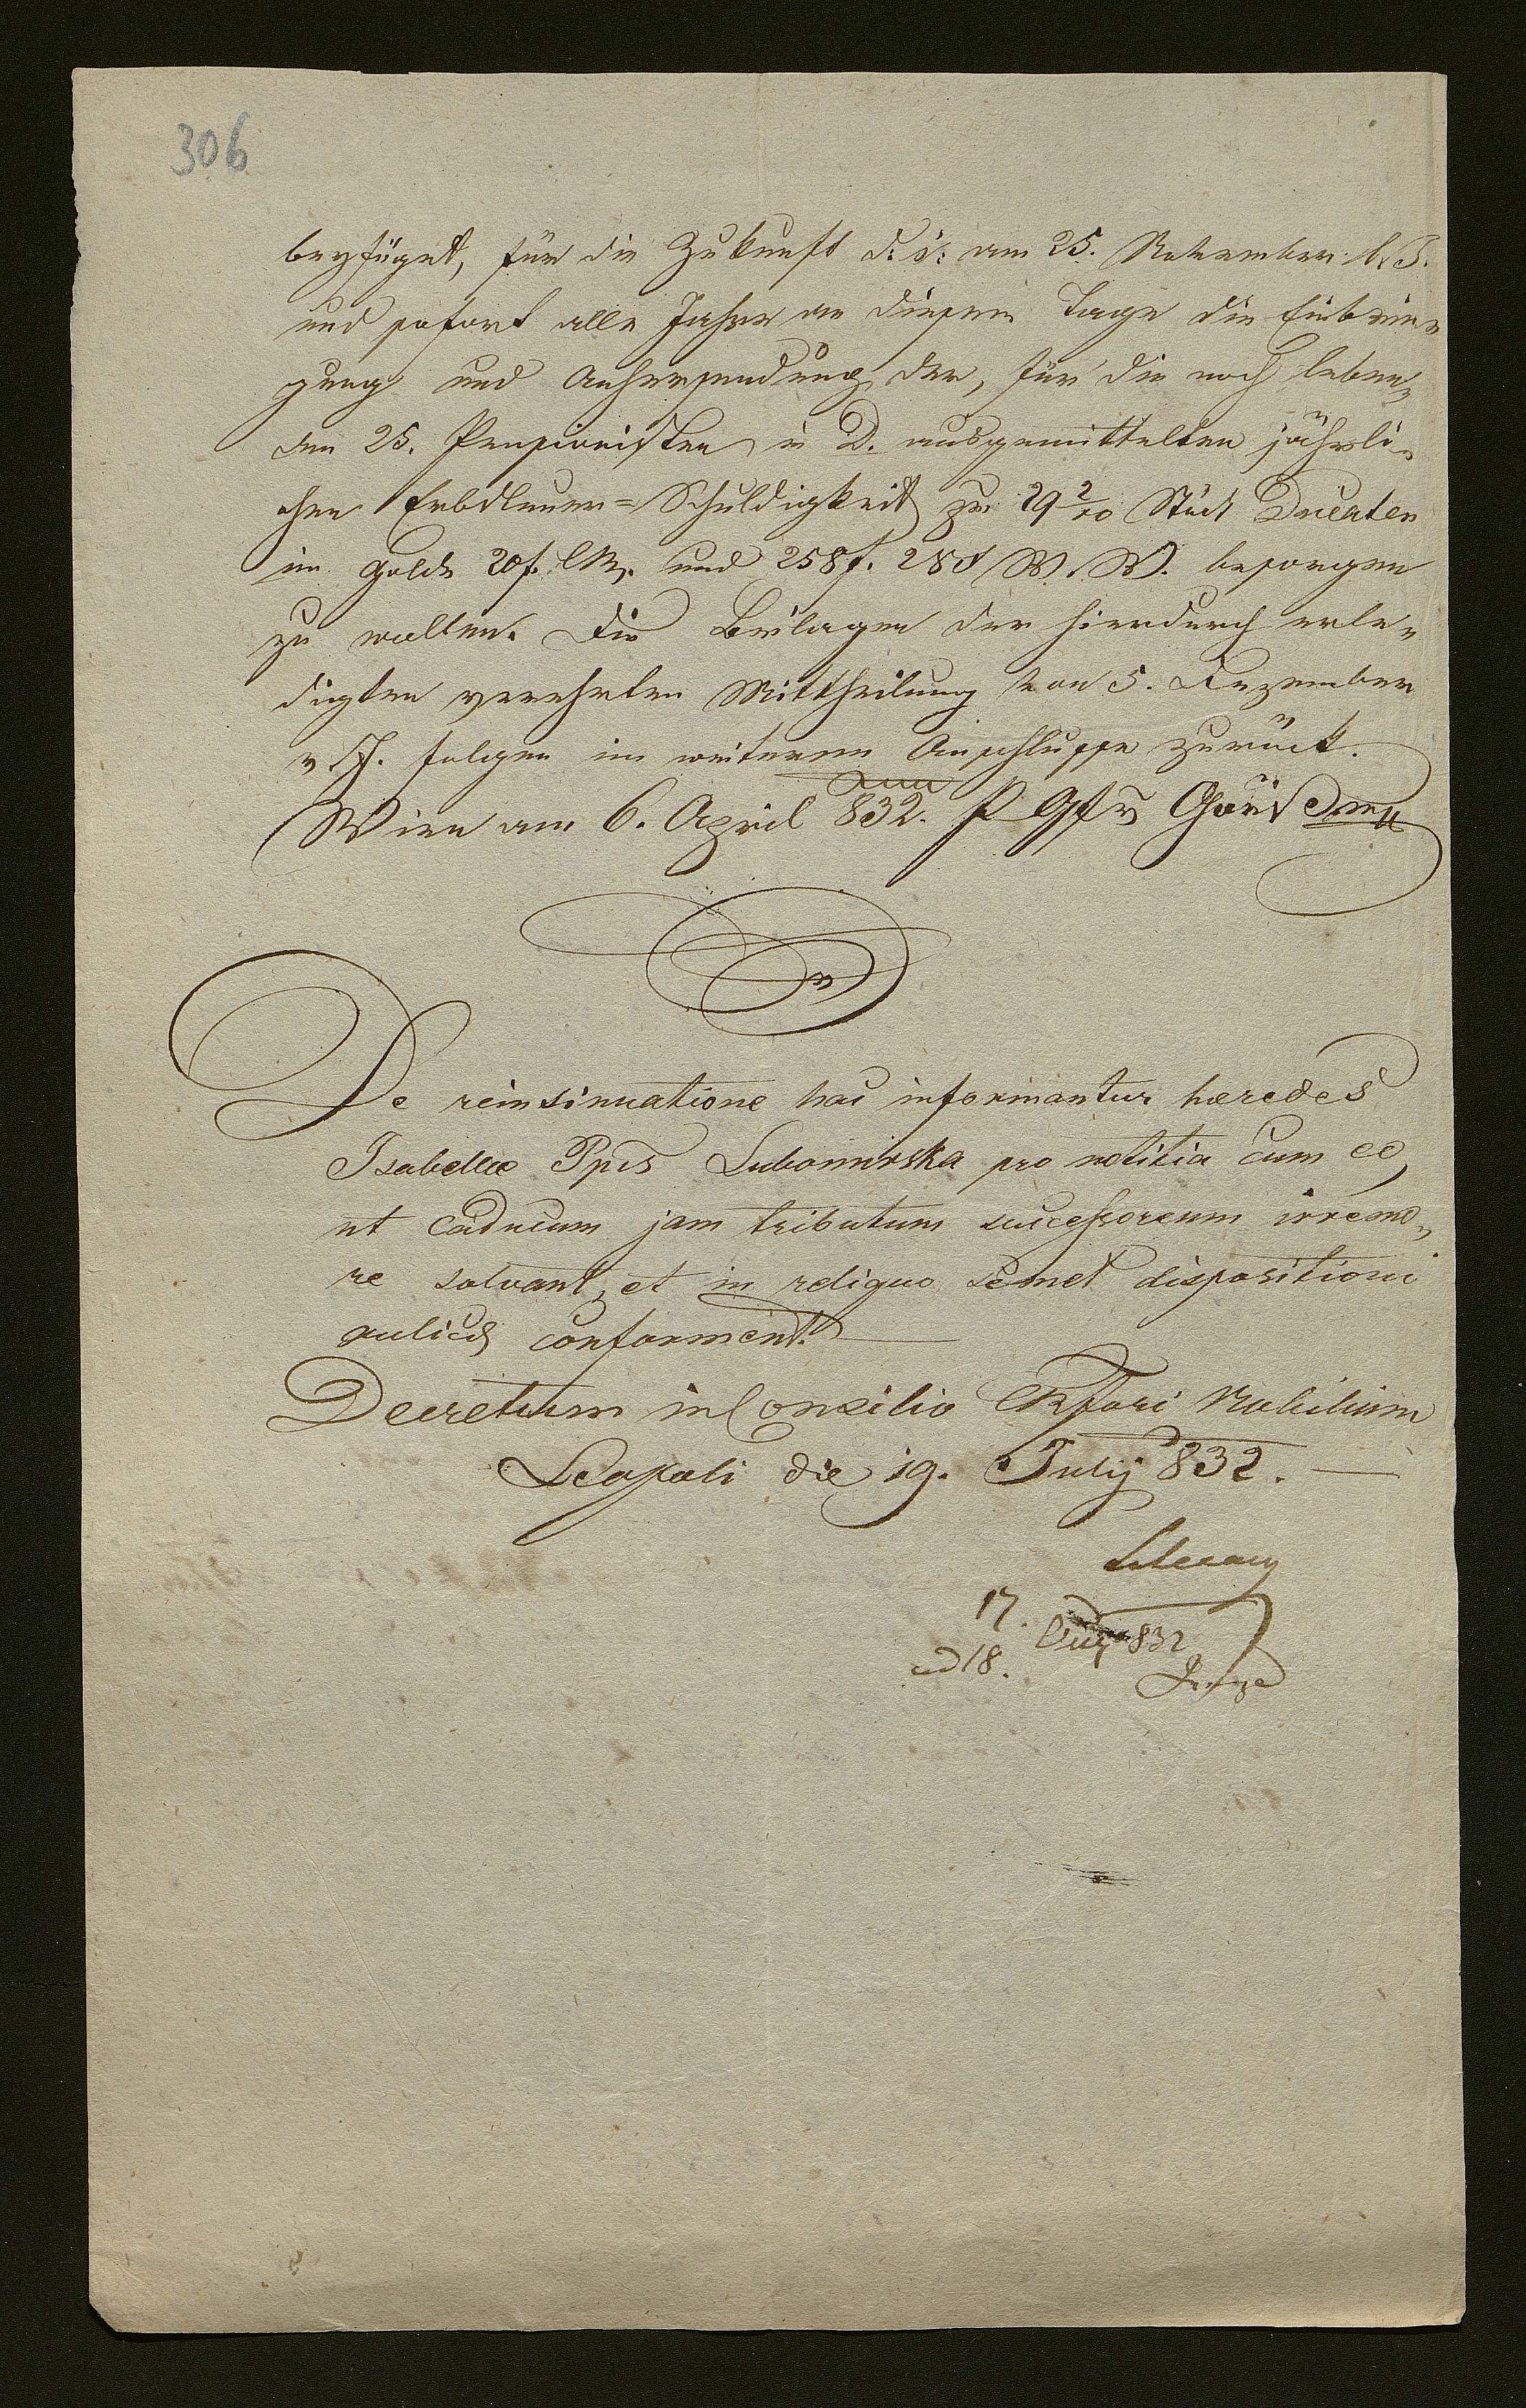 306
beyfüget, für die Zukunft d. i. am 25. November l. J.
und sofort alle Jahre an diesem Tage die Einbrin-
gung und Anhersendung der, für die noch leben-
den 25. Pensionisten in D. ausgemittelten jährli-
chen Erbsteuer=Schuldigkeit zu 29 2/10 Stück Ducaten
im Golde 20 f. CM. und 258 f. 28 W. W. besorgen
zu wollen. Die Beilagen der hierdurch erle-
digten verehrten Mittheilung von 5. Dezember
v. J. folgen im weiteren Anschlusse zurück.
Wien am 6. April 832.
De reinsinuatione hac informantur hæredes
Isabellæ Ppis Lubomirska pro notitia cum eo,
ut caducum jam tributum successoreum irremo-
re solvant, et in reliquo semet dispositioni
aulicæ conforment.
Decretum in Consilio CR Fori Nobilium
Leopoli die 19. July 832.
17.
Aug 832
ad 18.